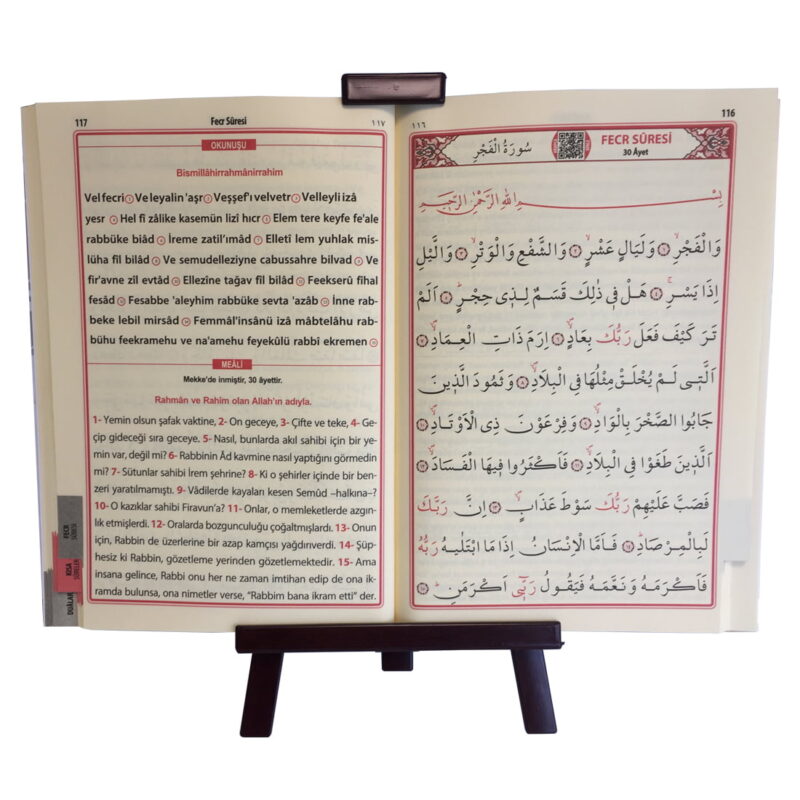 117 Fecr Sûresi ١١٧
OKUNUŞU
Bismillâhirrahmânirrahim
Vel fecri ① Ve leyalin 'aşr ② Veşşef'ı velvetr ③ Velleyli izâ
yesr ④ Hel fî zâlike kasemün lizî hıcr ⑤ Elem tere keyfe fe'ale
rabbüke biâd ⑥ İreme zatil'ımâd ⑦ Elletî lem yuhlak mis-
lüha fîl bilâd ⑧ Ve semudelleziyne cabussahre bilvad ⑨ Ve
fir'avne zîl evtâd ⑩ Ellezîne tağav fîl bilâd ⑪ Feekserû fîhal
fesâd ⑫ Fesabbe 'aleyhim rabbüke sevta 'azâb ⑬ İnne rab-
beke lebil mirsâd ⑭ Femmâl'insânü izâ mâbtelâhu rab-
bühu feekramehu ve na'amehu feyekûlü rabbî ekremen ⑮
MEÂLİ
Mekke'de inmiştir, 30 âyettir.
Rahmân ve Rahim olan Allah'ın adıyla.
1- Yemin olsun şafak vaktine, 2- On geceye, 3- Çifte ve teke, 4- Ge-
çip gideceği sıra geceye. 5- Nasıl, bunlarda akıl sahibi için bir ye-
min var, değil mi? 6- Rabbinin Âd kavmine nasıl yaptığını görmedin
mi? 7- Sütunlar sahibi İrem şehrine? 8- Ki o şehirler içinde bir ben-
zeri yaratılmamıştı. 9- Vâdilerde kayaları kesen Semûd –halkına–?
10- O kazıklar sahibi Firavun'a? 11- Onlar, o memleketlerde azgın-
lık etmişlerdi. 12- Oralarda bozgunculuğu çoğaltmışlardı. 13- Onun
için, Rabbin de üzerlerine bir azap kamçısı yağdırıverdi. 14- Şüp-
hesiz ki Rabbin, gözetleme yerinden gözetlemektedir. 15- Ama
insana gelince, Rabbi onu her ne zaman imtihan edip de ona ik-
ramda bulunsa, ona nimetler verse, "Rabbim bana ikram etti" der.
FECR SÛRESİ
KISA SÛRELER
DUÂLAR
١١٦ 116
سُورَةُ الْفَجْرِ FECR SÛRESİ
30 Âyet
بِسْمِ اللّٰهِ الرَّحْمٰنِ الرَّحٖيمِ
وَالْفَجْرِۙ ﴿١﴾ وَلَيَالٍ عَشْرٍۙ ﴿٢﴾ وَالشَّفْعِ وَالْوَتْرِۙ ﴿٣﴾ وَالَّيْلِ
اِذَا يَسْرِۚ ﴿٤﴾ هَلْ فٖي ذٰلِكَ قَسَمٌ لِذٖي حِجْرٍۜ ﴿٥﴾ اَلَمْ
تَرَ كَيْفَ فَعَلَ رَبُّكَ بِعَادٍۙ ﴿٦﴾ اِرَمَ ذَاتِ الْعِمَادِۙ ﴿٧﴾
اَلَّتٖي لَمْ يُخْلَقْ مِثْلُهَا فِي الْبِلَادِۙ ﴿٨﴾ وَثَمُودَ الَّذٖينَ
جَابُوا الصَّخْرَ بِالْوَادِۙ ﴿٩﴾ وَفِرْعَوْنَ ذِي الْاَوْتَادِۙ ﴿١٠﴾
اَلَّذٖينَ طَغَوْا فِي الْبِلَادِۙ ﴿١١﴾ فَاَكْثَرُوا فٖيهَا الْفَسَادَۙ ﴿١٢﴾
فَصَبَّ عَلَيْهِمْ رَبُّكَ سَوْطَ عَذَابٍۙ ﴿١٣﴾ اِنَّ رَبَّكَ
لَبِالْمِرْصَادِۜ ﴿١٤﴾ فَاَمَّا الْاِنْسَانُ اِذَا مَا ابْتَلٰيهُ رَبُّهُ
فَاَكْرَمَهُ وَنَعَّمَهُ فَيَقُولُ رَبّٖٓي اَكْرَمَنِۜ ﴿١٥﴾